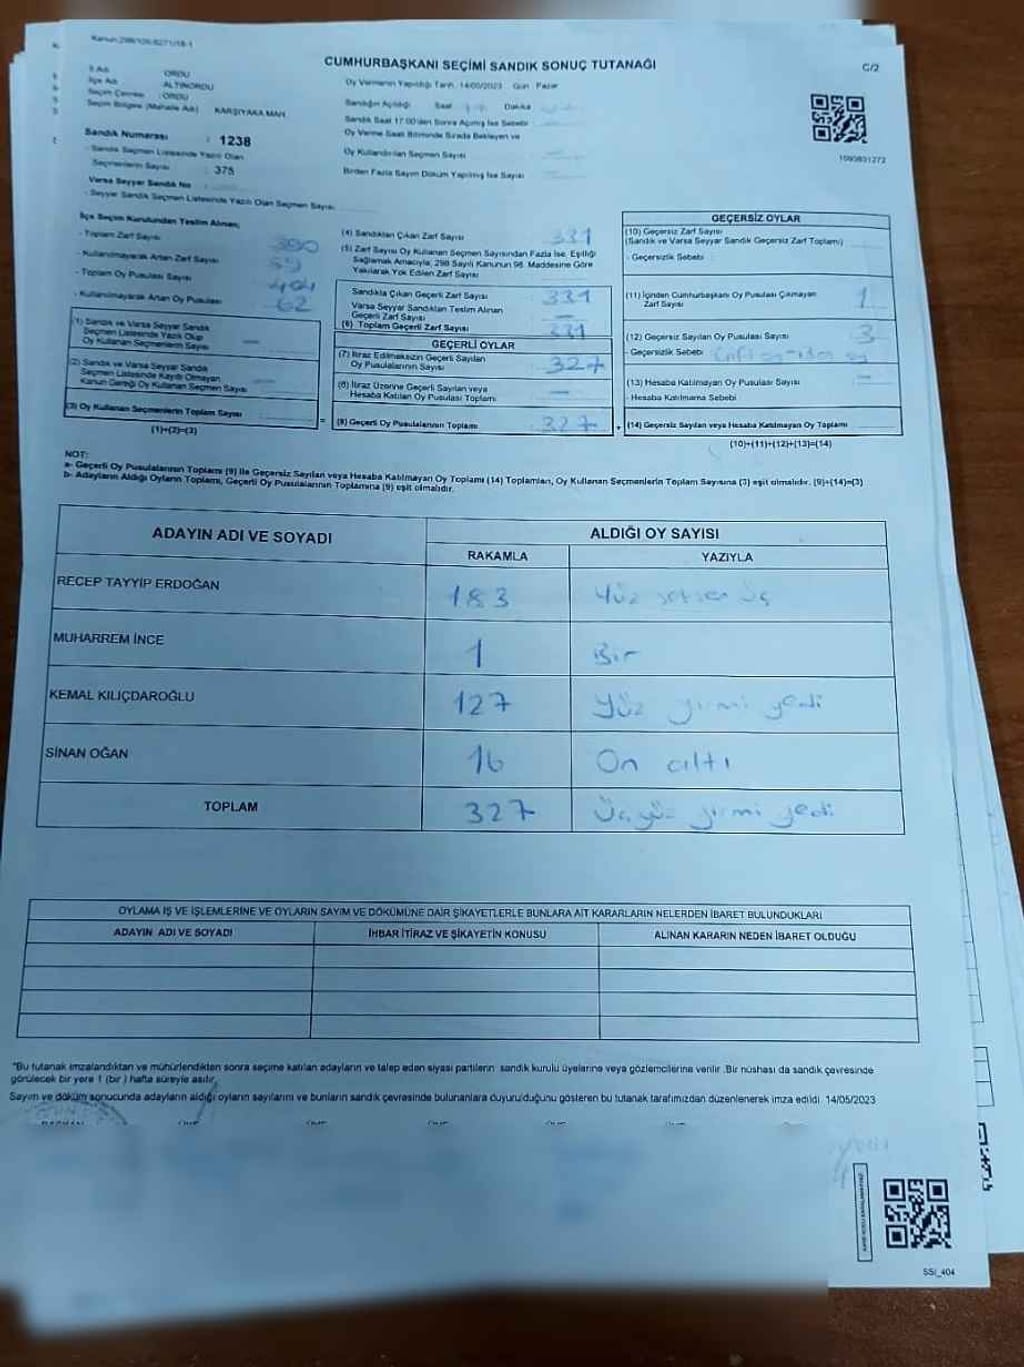 Kanun:298/106-8271/18-1
CUMHURBAŞKANI SEÇİMİ SANDIK SONUÇ TUTANAĞI
C/2
İl Adı : ORDU
İlçe Adı : ALTINORDU
Seçim Çevresi : ORDU
Seçim Bölgesi (Mahalle Adı) : KARŞIYAKA MAH.
Sandık Numarası : 1238
- Sandık Seçmen Listesinde Yazılı Olan
Seçmenlerin Sayısı : 375
Varsa Seyyar Sandık No
- Seyyar Sandık Seçmen Listesinde Yazılı Olan Seçmen Sayısı
Oy Vermenin Yapıldığı Tarih: 14/05/2023 Gün: Pazar
Sandığın Açıldığı Saat Dakika
Sandık Saat 17:00'den Sonra Açılmış İse Sebebi
Oy Verme Saati Bitiminde Sırada Bekleyen ve
Oy Kullandırılan Seçmen Sayısı
Birden Fazla Sayım Döküm Yapılmış İse Sayısı
1095831272
İlçe Seçim Kurulundan Teslim Alınan;
- Toplam Zarf Sayısı 390
- Kullanılmayarak Artan Zarf Sayısı 59
- Toplam Oy Pusulası Sayısı 404
- Kullanılmayarak Artan Oy Pusulası 62
(1) Sandık ve Varsa Seyyar Sandık
Seçmen Listesinde Yazılı Olup
Oy Kullanan Seçmenlerin Sayısı —
(2) Sandık ve Varsa Seyyar Sandık
Seçmen Listesinde Kayıtlı Olmayan
Kanun Gereği Oy Kullanan Seçmen Sayısı —
(3) Oy Kullanan Seçmenlerin Toplam Sayısı
(1)+(2)=(3)
(4) Sandıktan Çıkan Zarf Sayısı 331
(5) Zarf Sayısı Oy Kullanan Seçmen Sayısından Fazla İse, Eşitliği
Sağlamak Amacıyla, 298 Sayılı Kanunun 98. Maddesine Göre
Yakılarak Yok Edilen Zarf Sayısı
Sandıkta Çıkan Geçerli Zarf Sayısı 331
Varsa Seyyar Sandıktan Teslim Alınan
Geçerli Zarf Sayısı —
(6) Toplam Geçerli Zarf Sayısı 331
GEÇERLİ OYLAR
(7) İtiraz Edilmeksizin Geçerli Sayılan
Oy Pusulalarının Sayısı 327
(8) İtiraz Üzerine Geçerli Sayılan veya
Hesaba Katılan Oy Pusulası Toplamı —
(9) Geçerli Oy Pusulalarının Toplamı 327
GEÇERSİZ OYLAR
(10) Geçersiz Zarf Sayısı
(Sandık ve Varsa Seyyar Sandık Geçersiz Zarf Toplamı)
- Geçersizlik Sebebi
(11) İçinden Cumhurbaşkanı Oy Pusulası Çıkmayan
Zarf Sayısı 1
(12) Geçersiz Sayılan Oy Pusulası Sayısı 3
- Geçersizlik Sebebi
(13) Hesaba Katılmayan Oy Pusulası Sayısı —
- Hesaba Katılmama Sebebi
(14) Geçersiz Sayılan veya Hesaba Katılmayan Oy Toplamı
(10)+(11)+(12)+(13)=(14)
NOT:
a- Geçerli Oy Pusulalarının Toplamı (9) ile Geçersiz Sayılan veya Hesaba Katılmayan Oy Toplamı (14) Toplamları, Oy Kullanan Seçmenlerin Toplam Sayısına (3) eşit olmalıdır. (9)+(14)=(3)
b- Adayların Aldığı Oyların Toplamı, Geçerli Oy Pusulalarının Toplamına (9) eşit olmalıdır.
ADAYIN ADI VE SOYADI ALDIĞI OY SAYISI
RAKAMLA YAZIYLA
RECEP TAYYİP ERDOĞAN 183 Yüz seksen üç
MUHARREM İNCE 1 Bir
KEMAL KILIÇDAROĞLU 127 Yüz yirmi yedi
SİNAN OĞAN 16 On altı
TOPLAM 327 Üçyüz yirmi yedi
OYLAMA İŞ VE İŞLEMLERİNE VE OYLARIN SAYIM VE DÖKÜMÜNE DAİR ŞİKAYETLERLE BUNLARA AİT KARARLARIN NELERDEN İBARET BULUNDUKLARI
ADAYIN ADI VE SOYADI İHBAR İTİRAZ VE ŞİKAYETİN KONUSU ALINAN KARARIN NEDEN İBARET OLDUĞU
*Bu tutanak imzalandıktan ve mühürlendikten sonra seçime katılan adayların ve talep eden siyasi partilerin sandık kurulu üyelerine veya gözlemcilerine verilir. Bir nüshası da sandık çevresinde
görülecek bir yere 1 (bir) hafta süreyle asılır.
Sayım ve döküm sonucunda adayların aldığı oyların sayılarını ve bunların sandık çevresinde bulunanlara duyurulduğunu gösteren bu tutanak tarafımızdan düzenlenerek imza edildi. 14/05/2023
SSİ_404